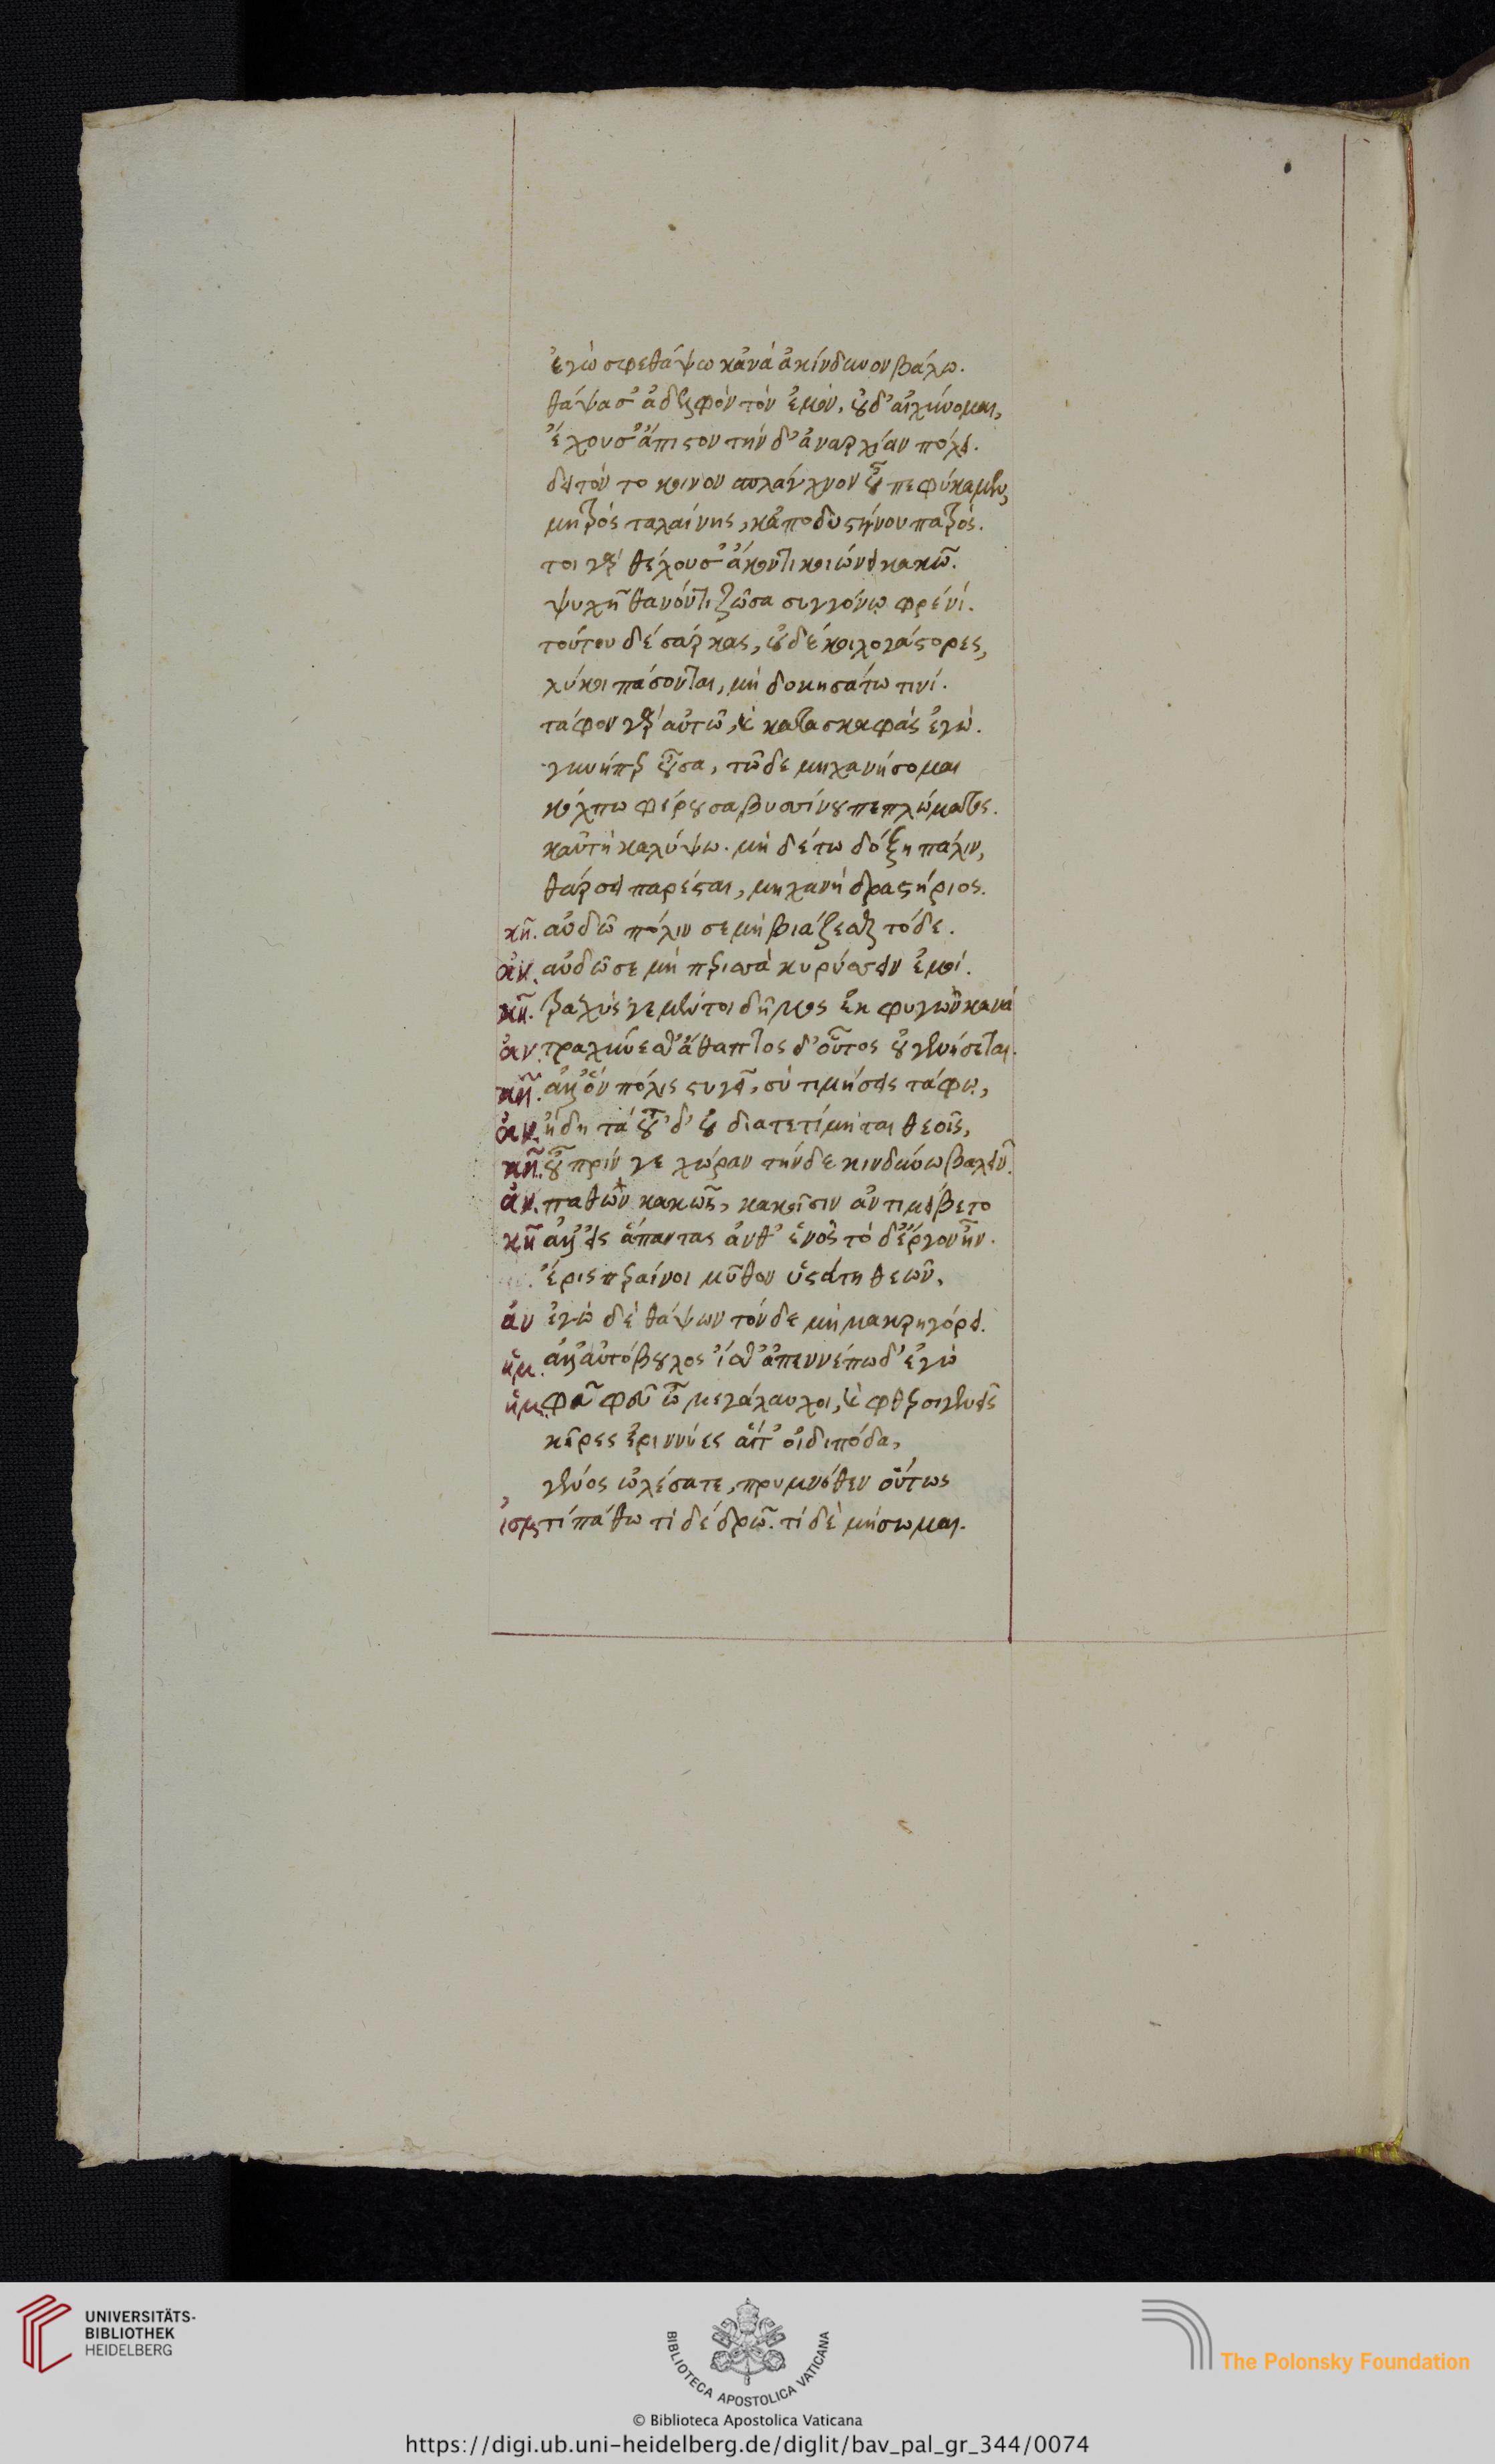 ἐγὼ σφε θάψω κἀνὰ ἀκίνδυνον βάλω.
θάψασ' ἀδελφὸν τὸν ἐμόν, οὐδ' αἰχύνομαι,
ἔχουσ' ἄπιστον τὴν δ' ἀναρχίαν πόλει.
δειτὸν το κοινον σπλάγχνον οὗ πεφύκαμεν,
μητρὸς ταλαίνης, κἀπο δυστήνου πατρός.
τοι γὰρ θέλουσ' ἄκοντι κοιώνει κακῶ.
ψυχῆ θανόντι ζῶσα συγγόνω φρένί.
τούτου δὲ σάρκας, οὐδὲ κοιλογάστορες,
λύκοι πάσονται, μὴ δοκησάτω τινί.
τάφον γὰρ αὐτῶ, καὶ κατασκαφὰς ἐγώ.
γυνήπερ οὖσα, τῶδε μηχανήσομαι
κόλπω φέρουσα βυσσίνου πεπλώματος.
καὐτὴ καλύψω. μὴ δέ τω δόξη πάλιν,
θάρσει παρέσται, μηχανὴ δραστήριος.
κῆ. αὐδῶ πόλιν σε μὴ βιάζεσθαι τόδε.
ἀν. αὐδῶ σε μὴ περισσὰ κυρύσσειν ἐμοί.
κῆ. τραχύς γε μέντοι δῆμος ἐκ φυγὼν κακά
ἀν. τραχύνεσθ' ἄθαπτος δ' οὗτος οὐ γενήσεται.
κῆ. ἀλλ' ὃν πόλις στυγεῖ, σὺ τιμήσεις τάφω,
ἀν. ἤδη τὰ οῦδ' οὐ διατετίμηται θεοῖς,
κῆ. οὖ πρίν γε χώραν τήνδε κινδύνω βαλεῖν.
ἀν. παθὼν κακῶς, κακοῖσιν ἀντιμείβετο
κῆ ἀλλ' εἰς ἅπαντας ἀνθ' ἑνὸς τὸ δ' ἔργον ἦν.
ἔρις περαίνοι μῦθον ὑστάτη θεῶν,
ἀν ἐγὼ δὲ θάψων τόνδε μὴ μακρηγόρει.
ἡμ. ἀλλ' αὐτόβουλος ἴσθ' ἀπεννέπω δ' ἐγὼ
ἡμ. φεῦ φεῦ ὦ μεγάλαυχοι, καὶ φθερσιγενεῖς
κῆρες ἐριννύες αἵτ' οἰδιπόδα,
γένος ὠλέσατε, πρυμνόθεν οὕτως
ἰσμ τί πάθω τί δὲ δρῶ. τί δὲ μήσωμαι.
UNIVERSITÄTS-
BIBLIOTHEK
HEIDELBERG
BIBLIOTECA APOSTOLICA VATICANA
The Polonsky Foundation
© Biblioteca Apostolica Vaticana
https://digi.ub.uni-heidelberg.de/diglit/bav_pal_gr_344/0074